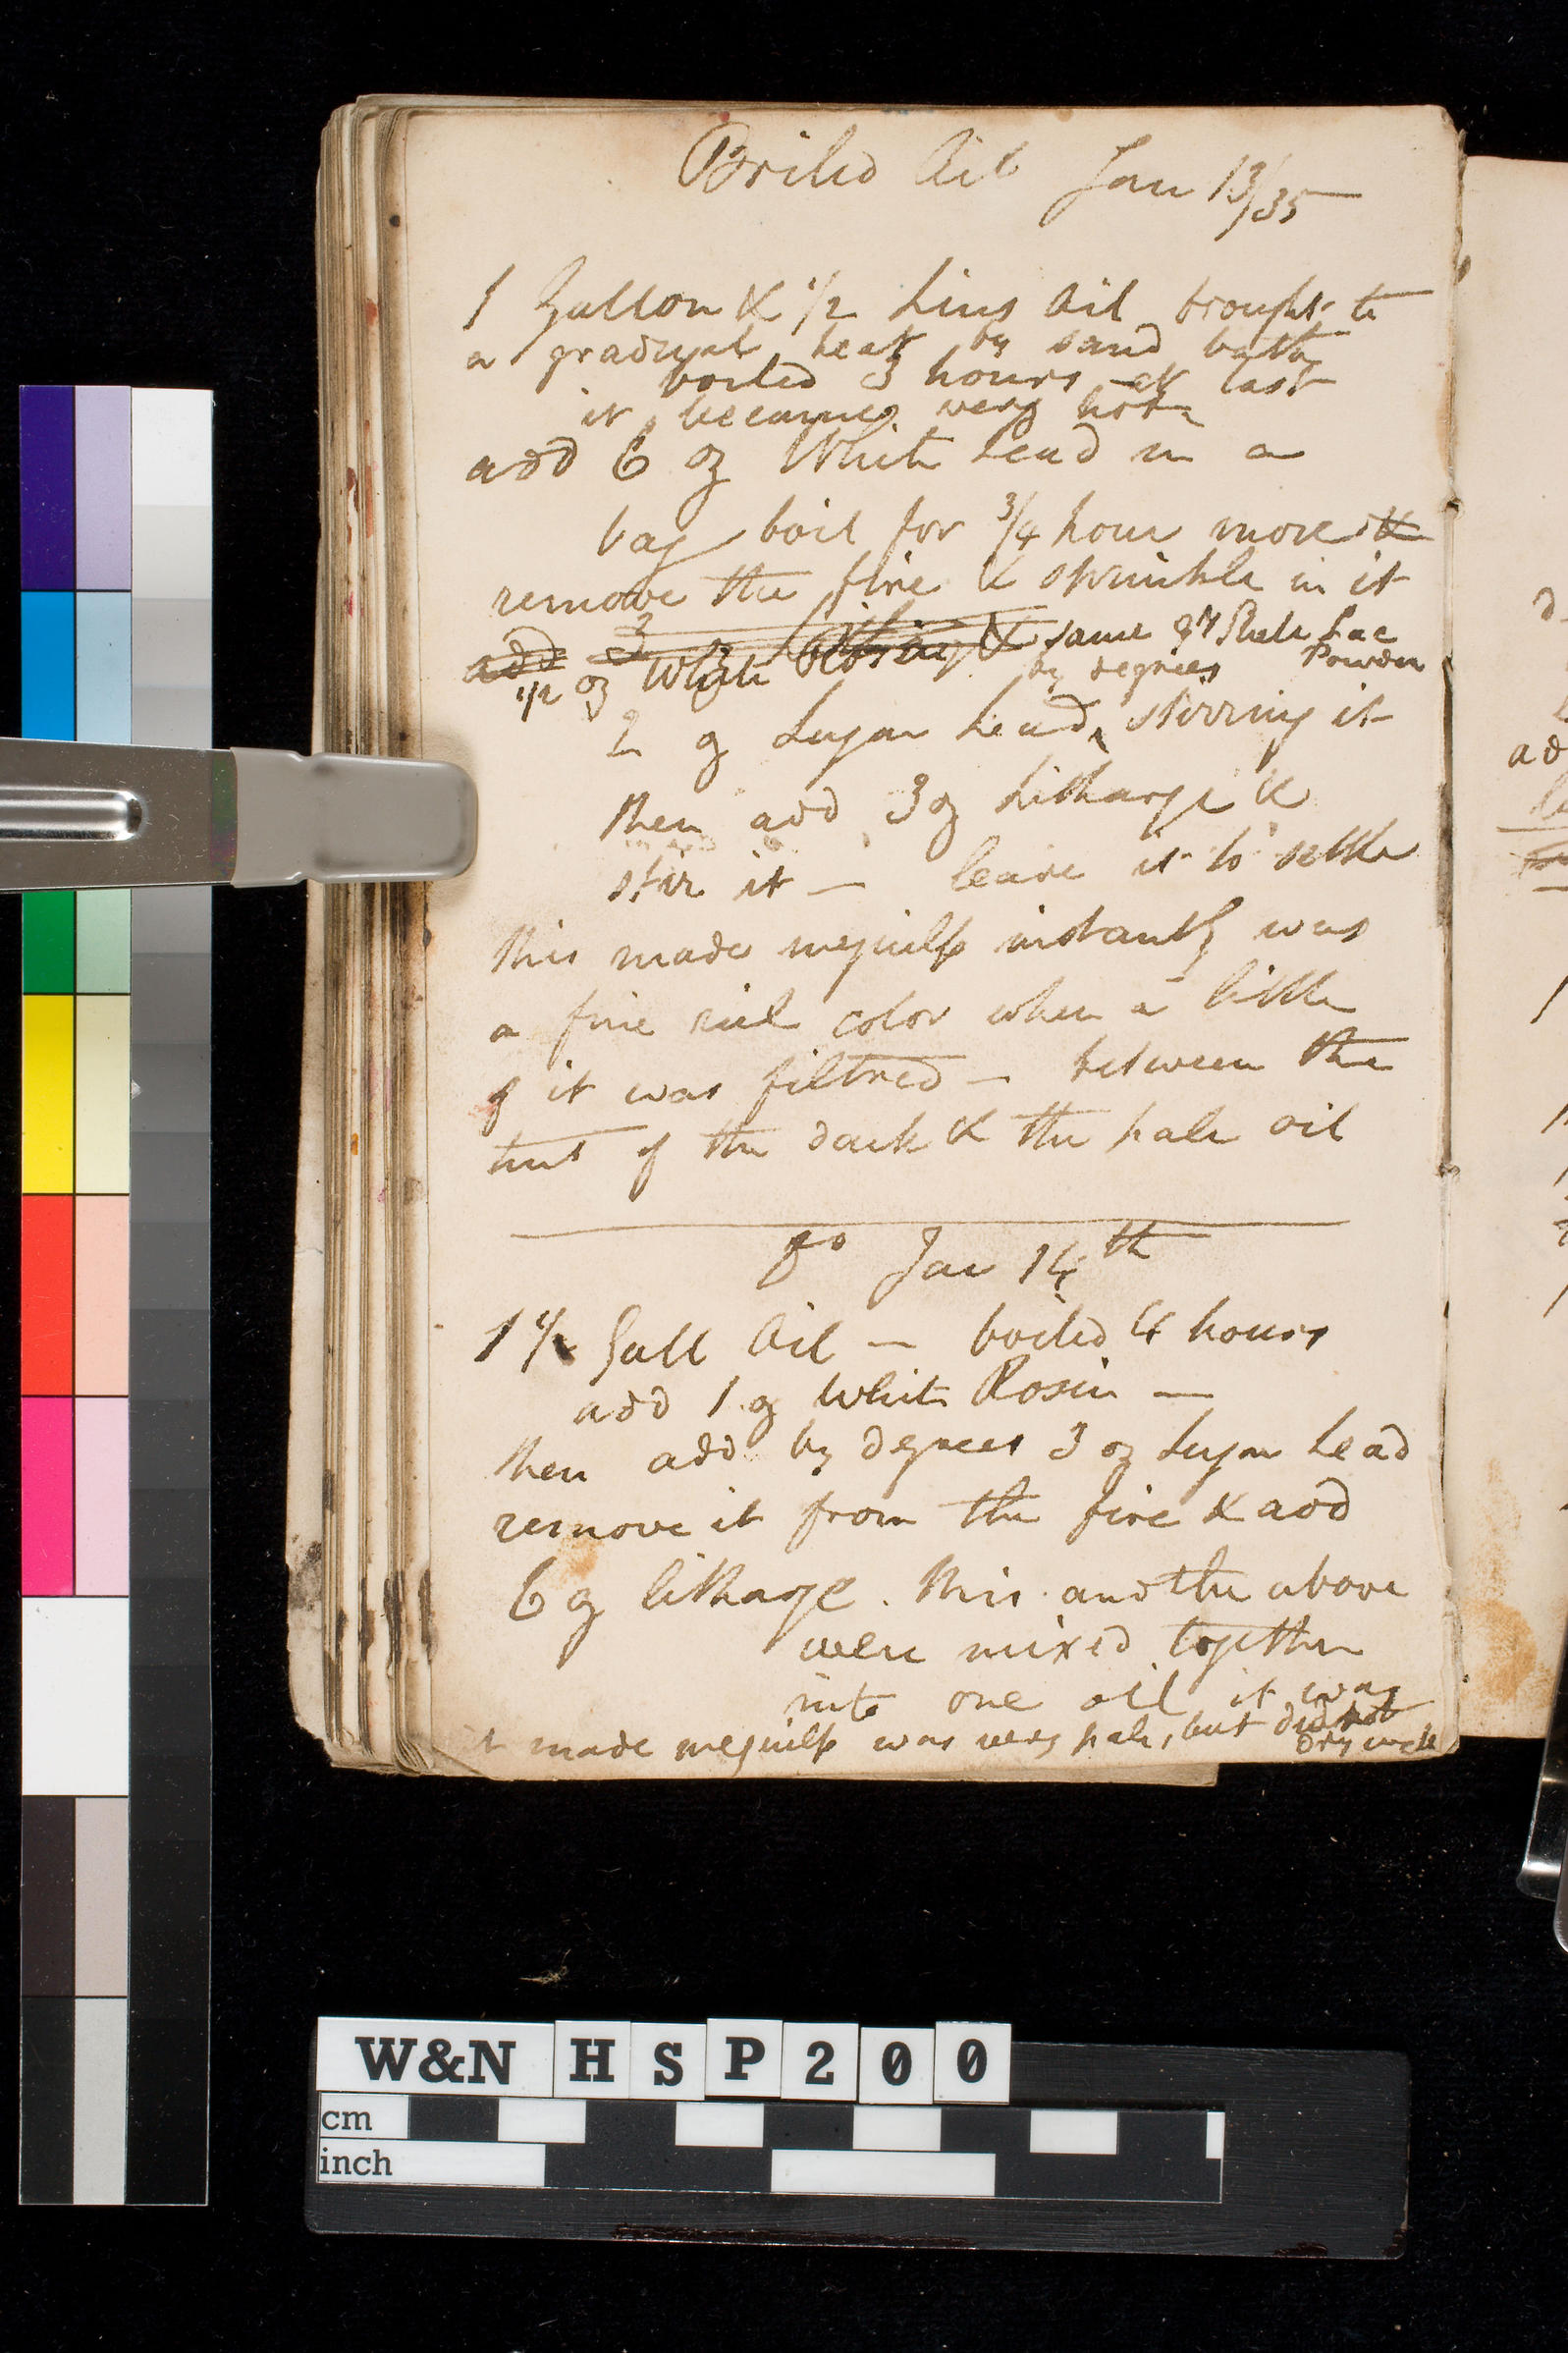 Boiled Oil Jan 13/35
1 Gallon & 1/2 Lins Oil brought to
a gradual heat by sand bath
boiled 3 hours at last
it became very hot
add 6 oz White Lead in a
bag boil for 3/4 hour more &
remove the fire & sprinkle in it
add 3
1/2 oz White Rosin & same qy Shele Lac
by degrees Powder
2 oz Sugar Lead, stirring it
then add 3 oz Litharge &
stir it — leave it to settle
this made meguilp instantly was
a fine rich color when a little
of it was filtred — between the
tint of the dark & the pale oil
Do Jan 14th
1 1/2 Gall Oil — boiled 4 hours
add 1 oz White Rosin —
then add by degrees 3 oz Sugar Lead
remove it from the fire & add
6 oz litharge. this and the above
were mixed together
into one oil it was
it made meguilp was very pale, but did not
dry well
W&N HSP200
cm
inch